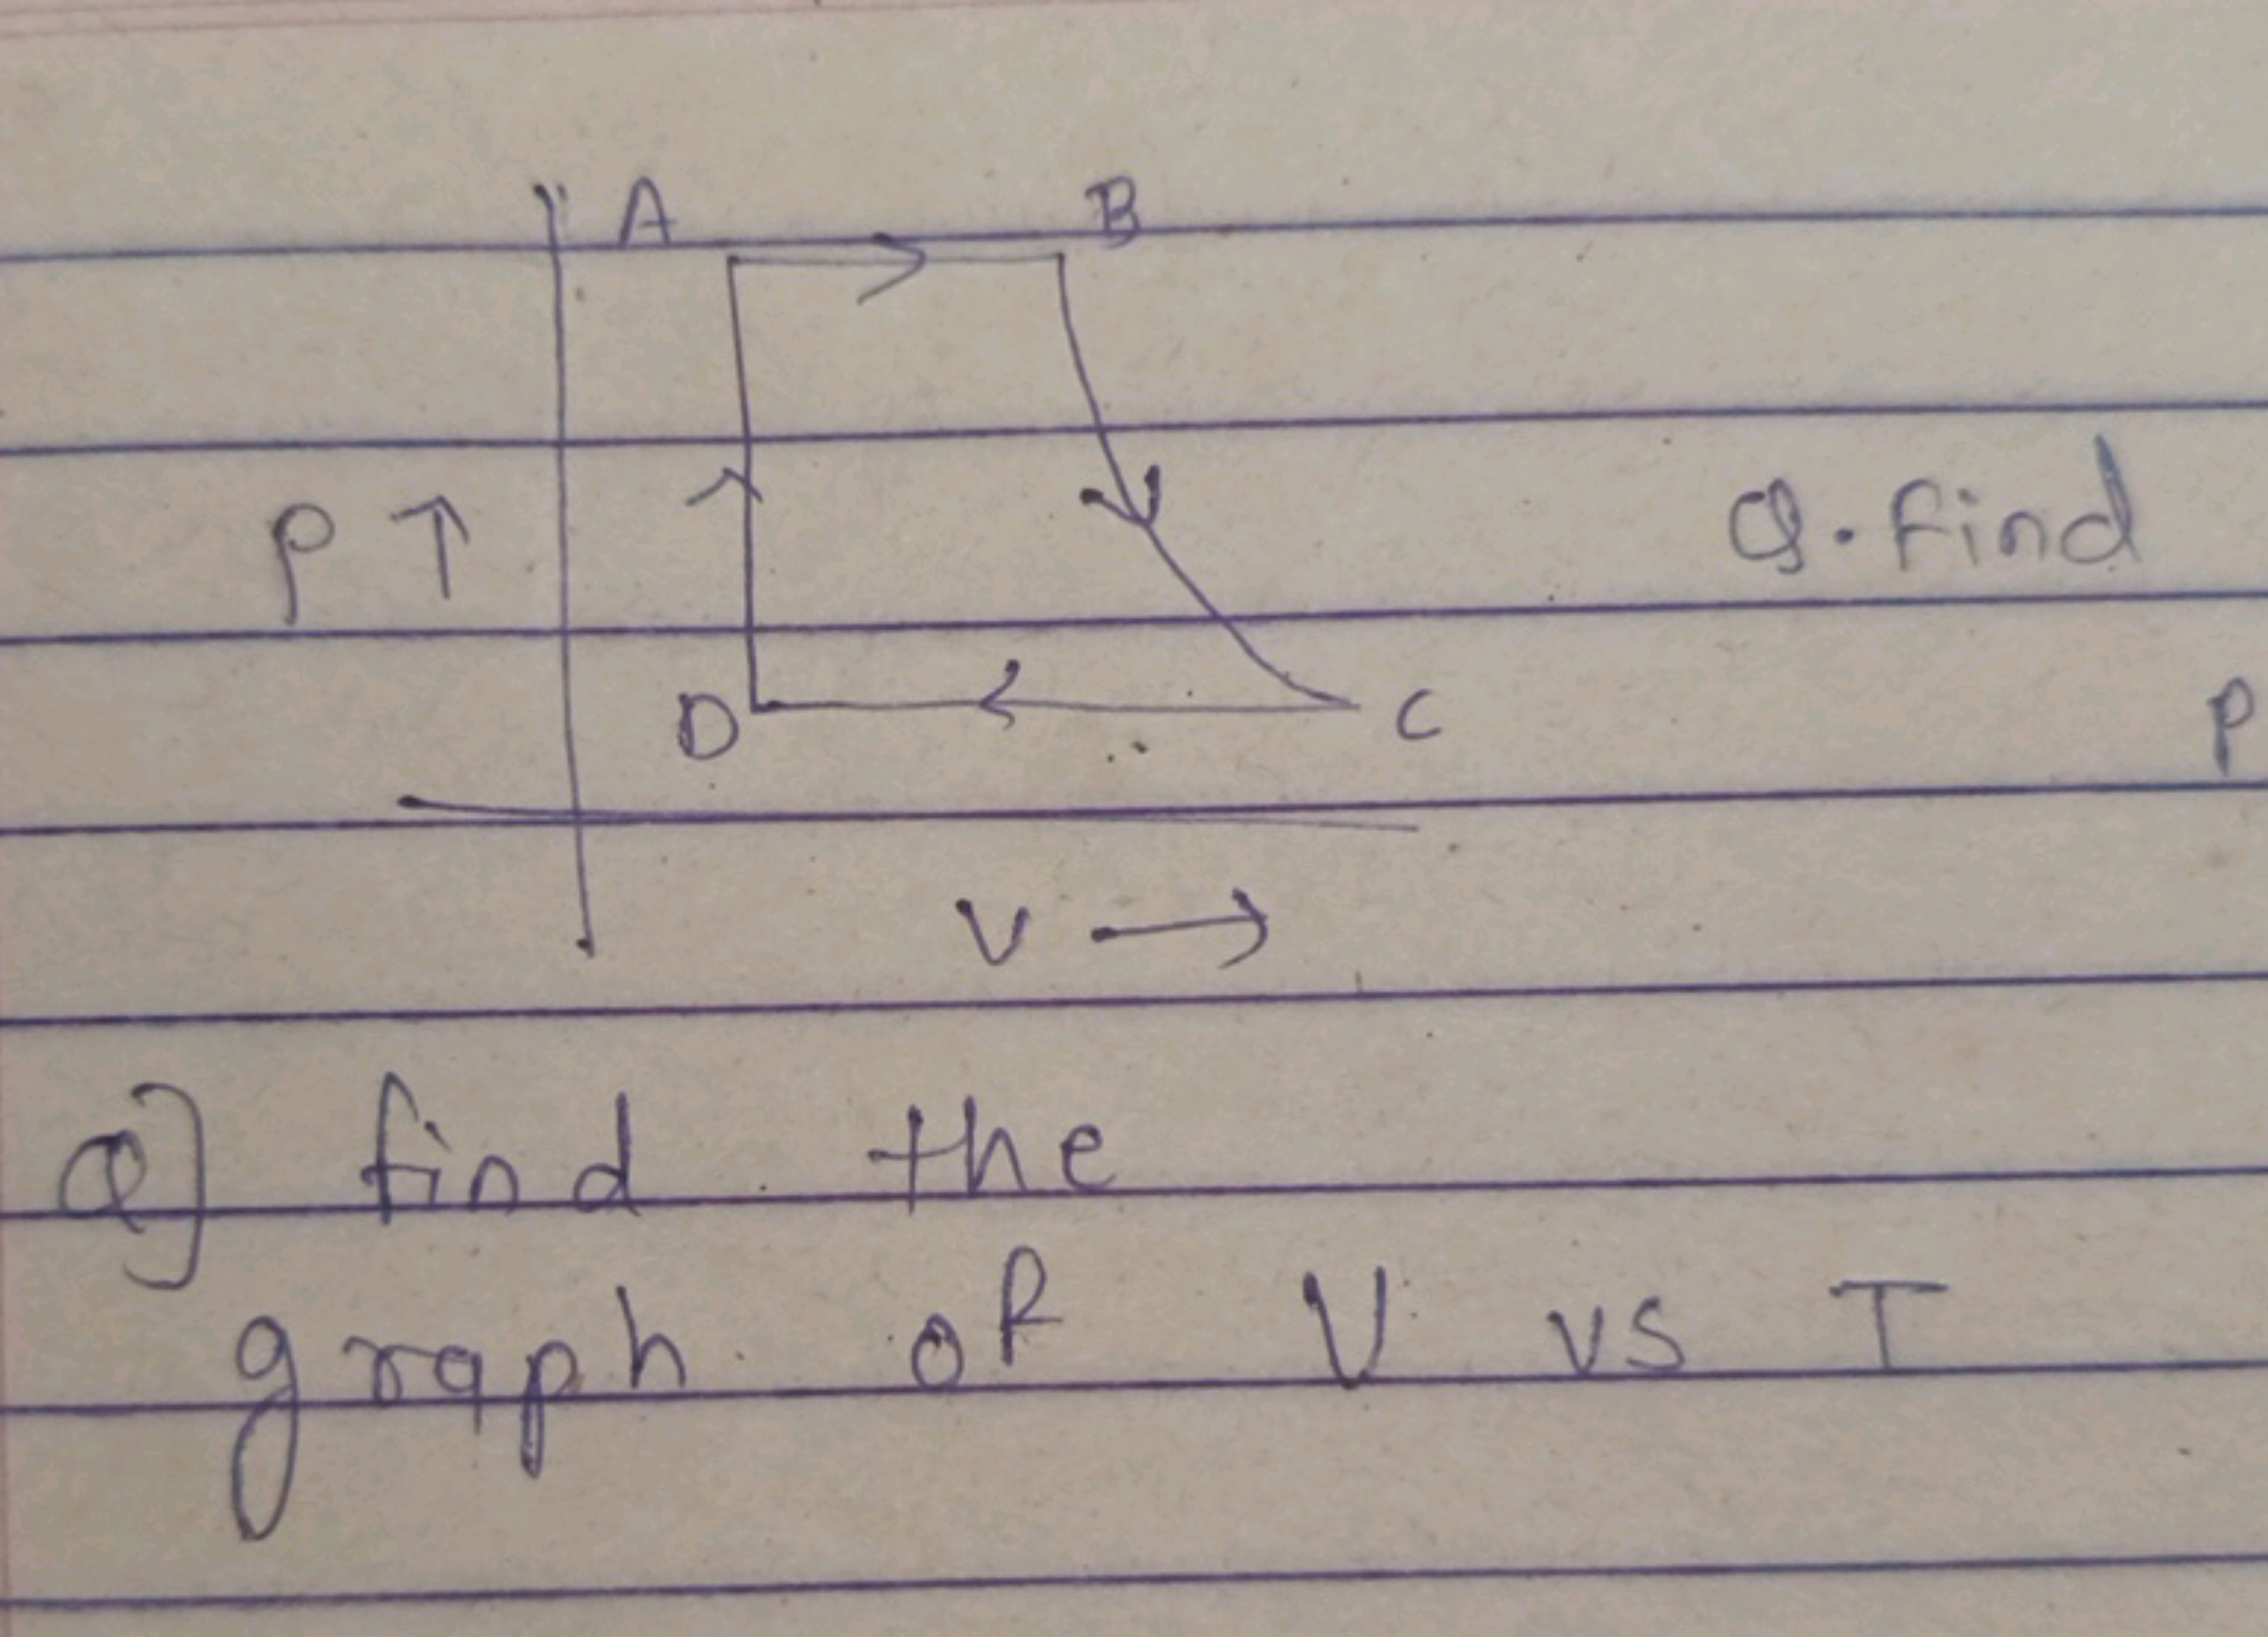 A B
P ↑
Q. Find
D C
P
V →
Q] find the
graph of V vs T